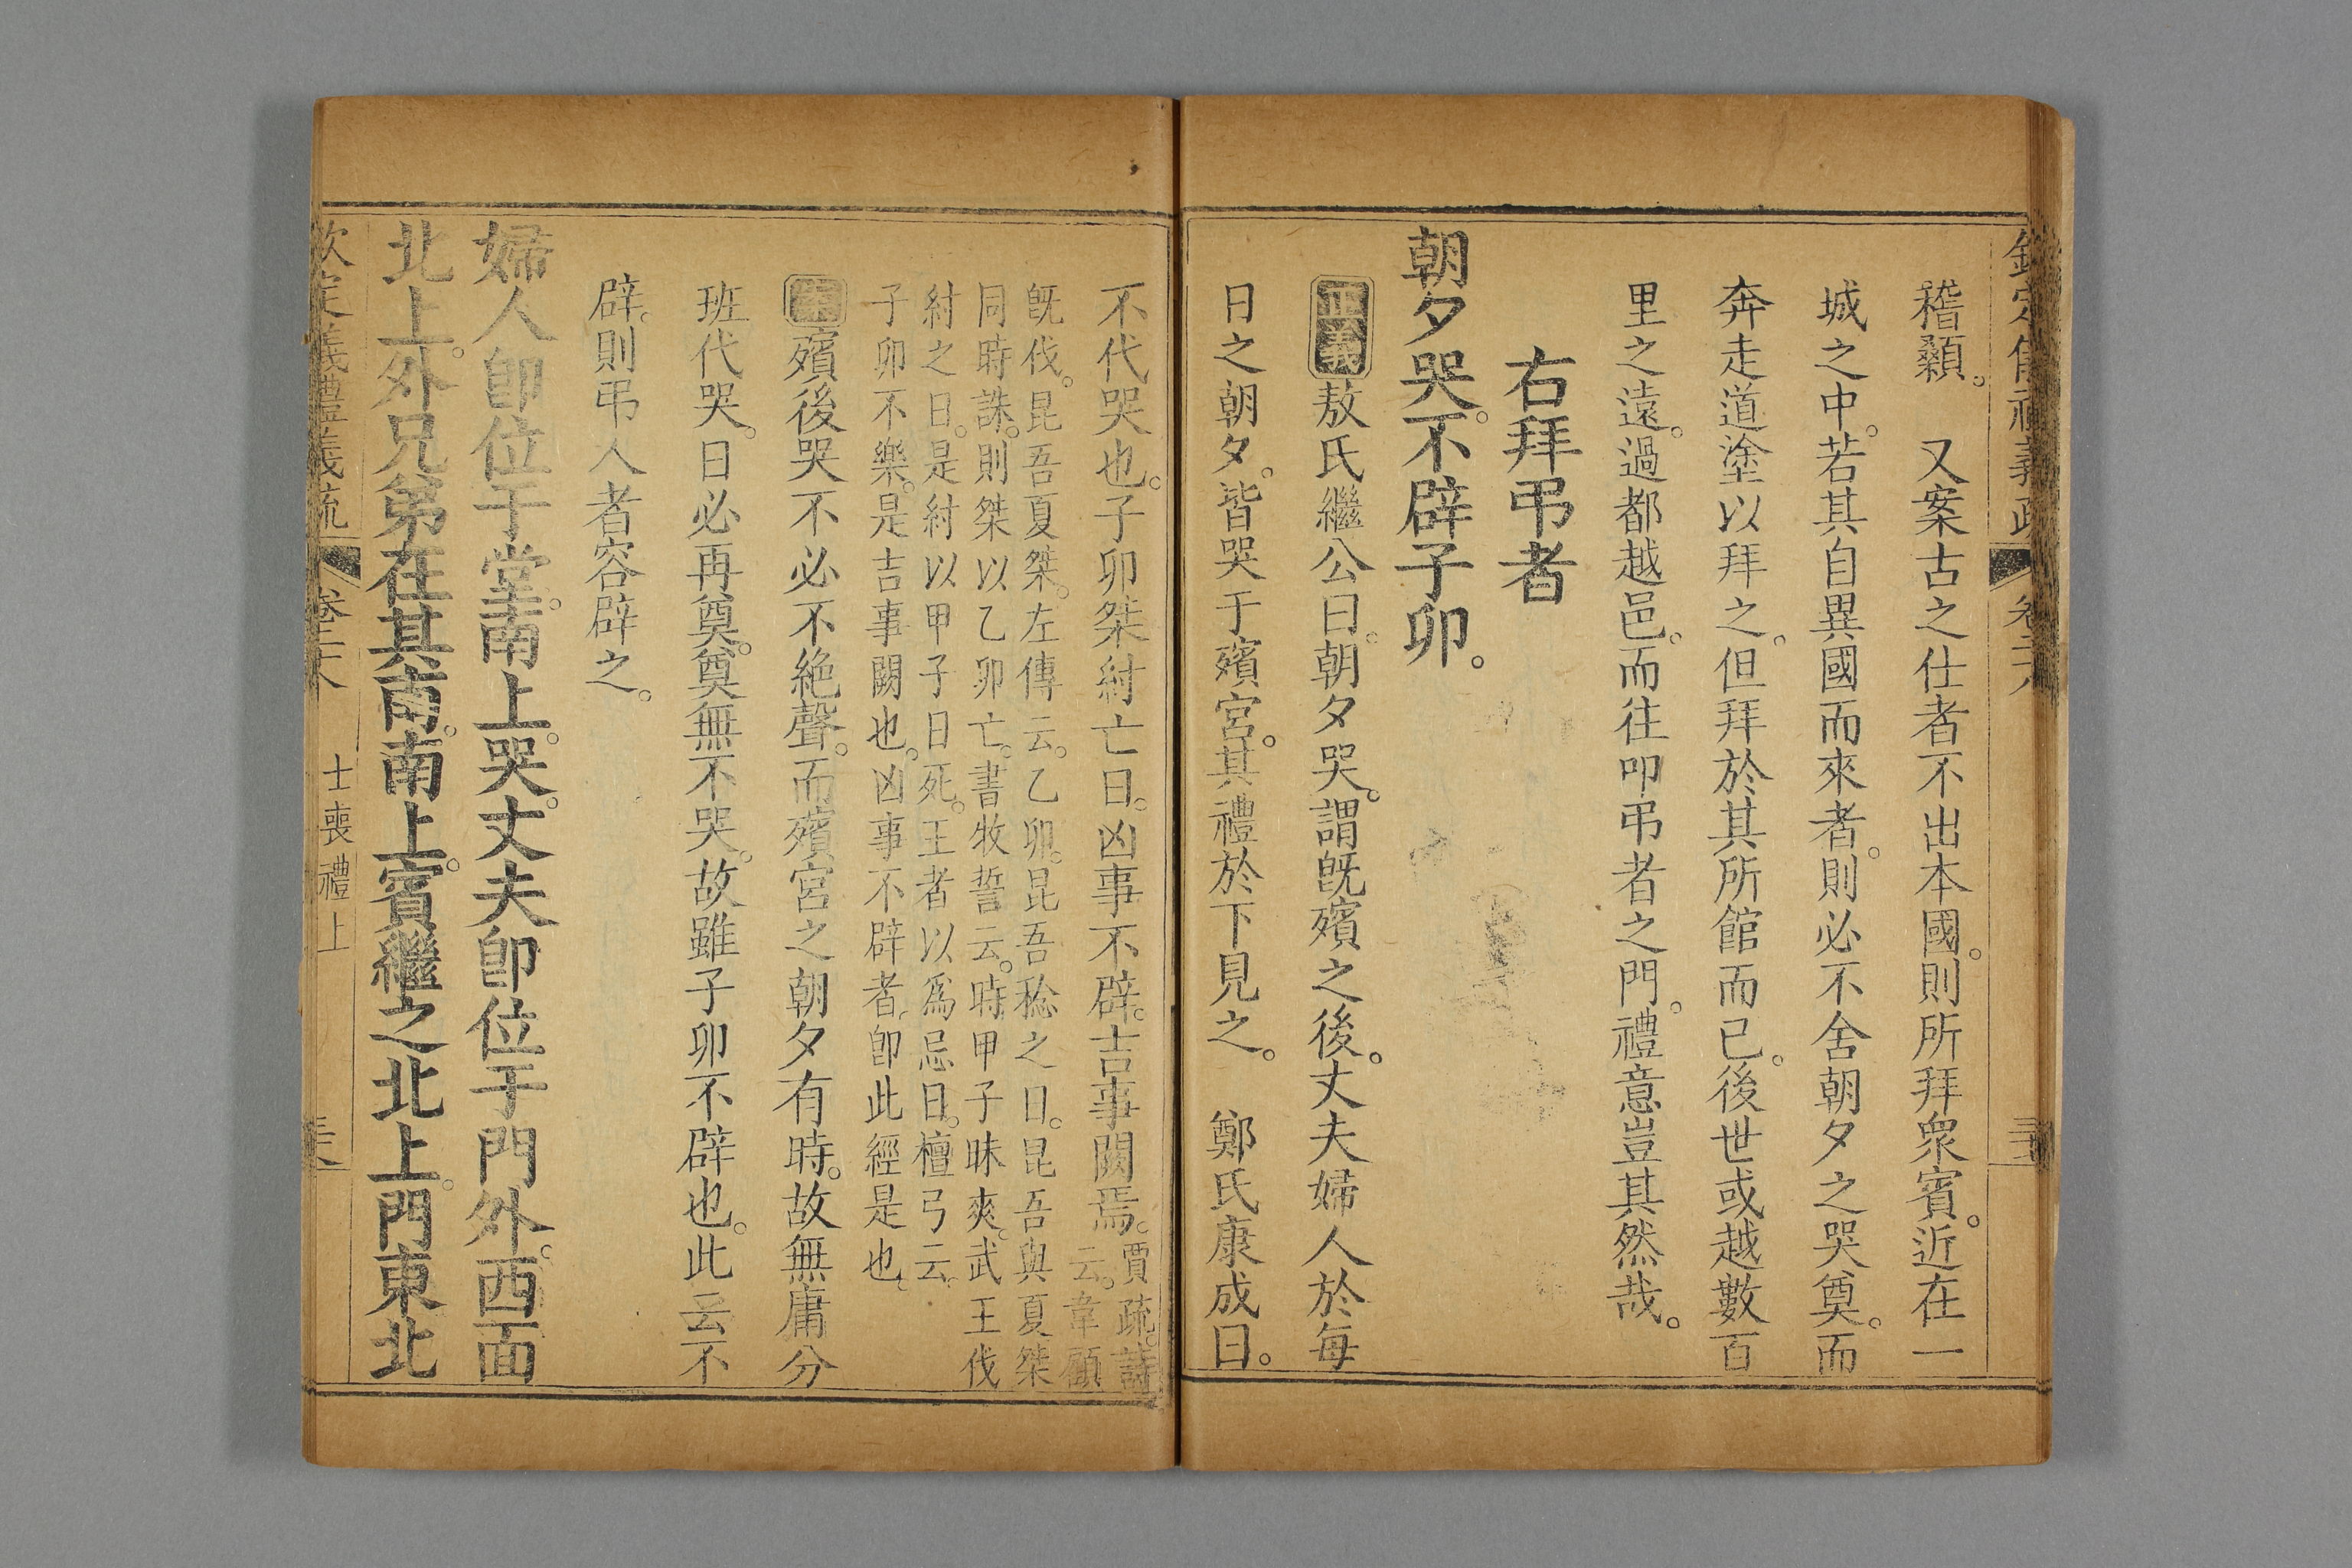 稽顙。　又案古之仕者不出本國。則所拜衆賓。近在一
城之中。若其自異國而來者。則必不舍朝夕之哭奠。而
奔走道塗以拜之。但拜於其所館而已。後世或越數百
里之遠。過都越邑。而往叩弔者之門。禮意豈其然哉。
右拜弔者
朝夕哭。不辟子卯。
正義敖氏繼公曰。朝夕哭。謂旣殯之後。丈夫婦人於每
日之朝夕。皆哭于殯宮。其禮於下見之。　鄭氏康成曰。
不代哭也。子卯桀紂亡日。凶事不辟。吉事闕焉。賈疏。詩
云。韋顧
旣伐。昆吾夏桀。左傳云。乙卯。昆吾稔之日。昆吾與夏桀
同時誅。則桀以乙卯亡。書牧誓云。時甲子昧爽。武王伐
紂之日。是紂以甲子日死。王者以爲忌日。檀弓云。
子卯不樂。是吉事闕也。凶事不辟者。卽此經是也。
殯後哭不必不絶聲。而殯宮之朝夕有時。故無庸分
班代哭。日必再奠。奠無不哭。故雖子卯不辟也。此云不
辟。則弔人者容辟之。
婦人卽位于堂。南上。哭。丈夫卽位于門外。西面
北上。外兄弟在其南。南上。賓繼之北上。門東北
欽定義禮義疏　卷二十八　士喪禮上